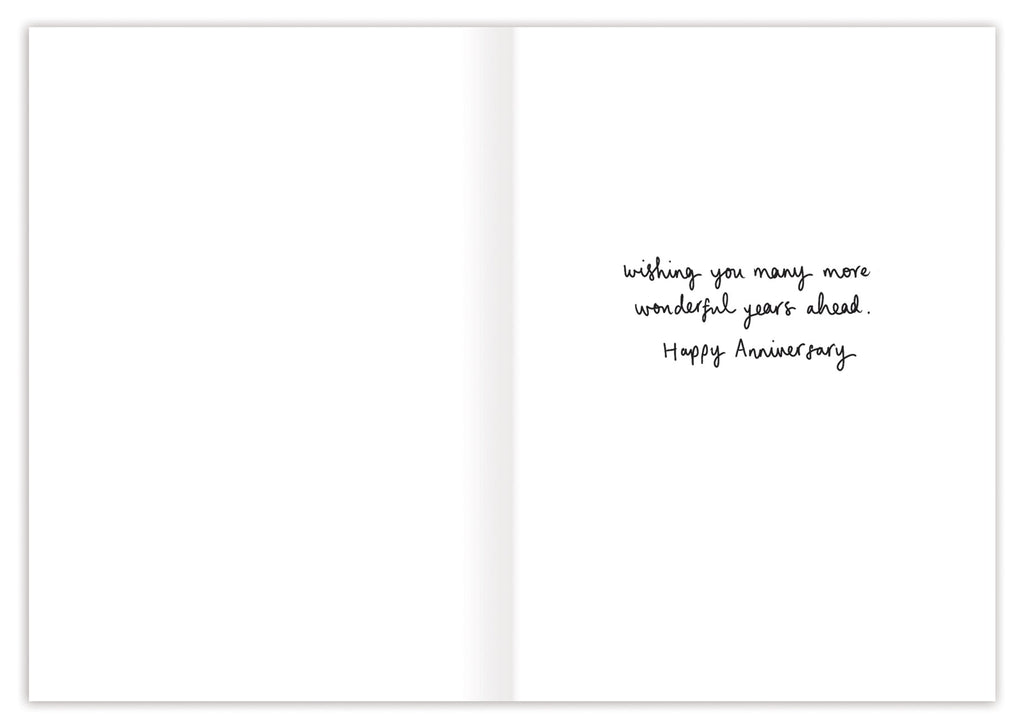 wishing you many more
wonderful years ahead.
Happy Anniversary